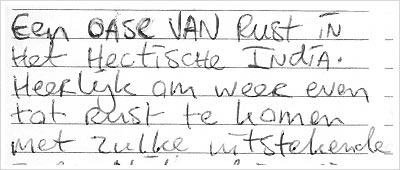 Een OASE VAN Rust iN
Het Hectische India.
Heerlijk om weer even
tot rust te komen
met zulke uitstekende